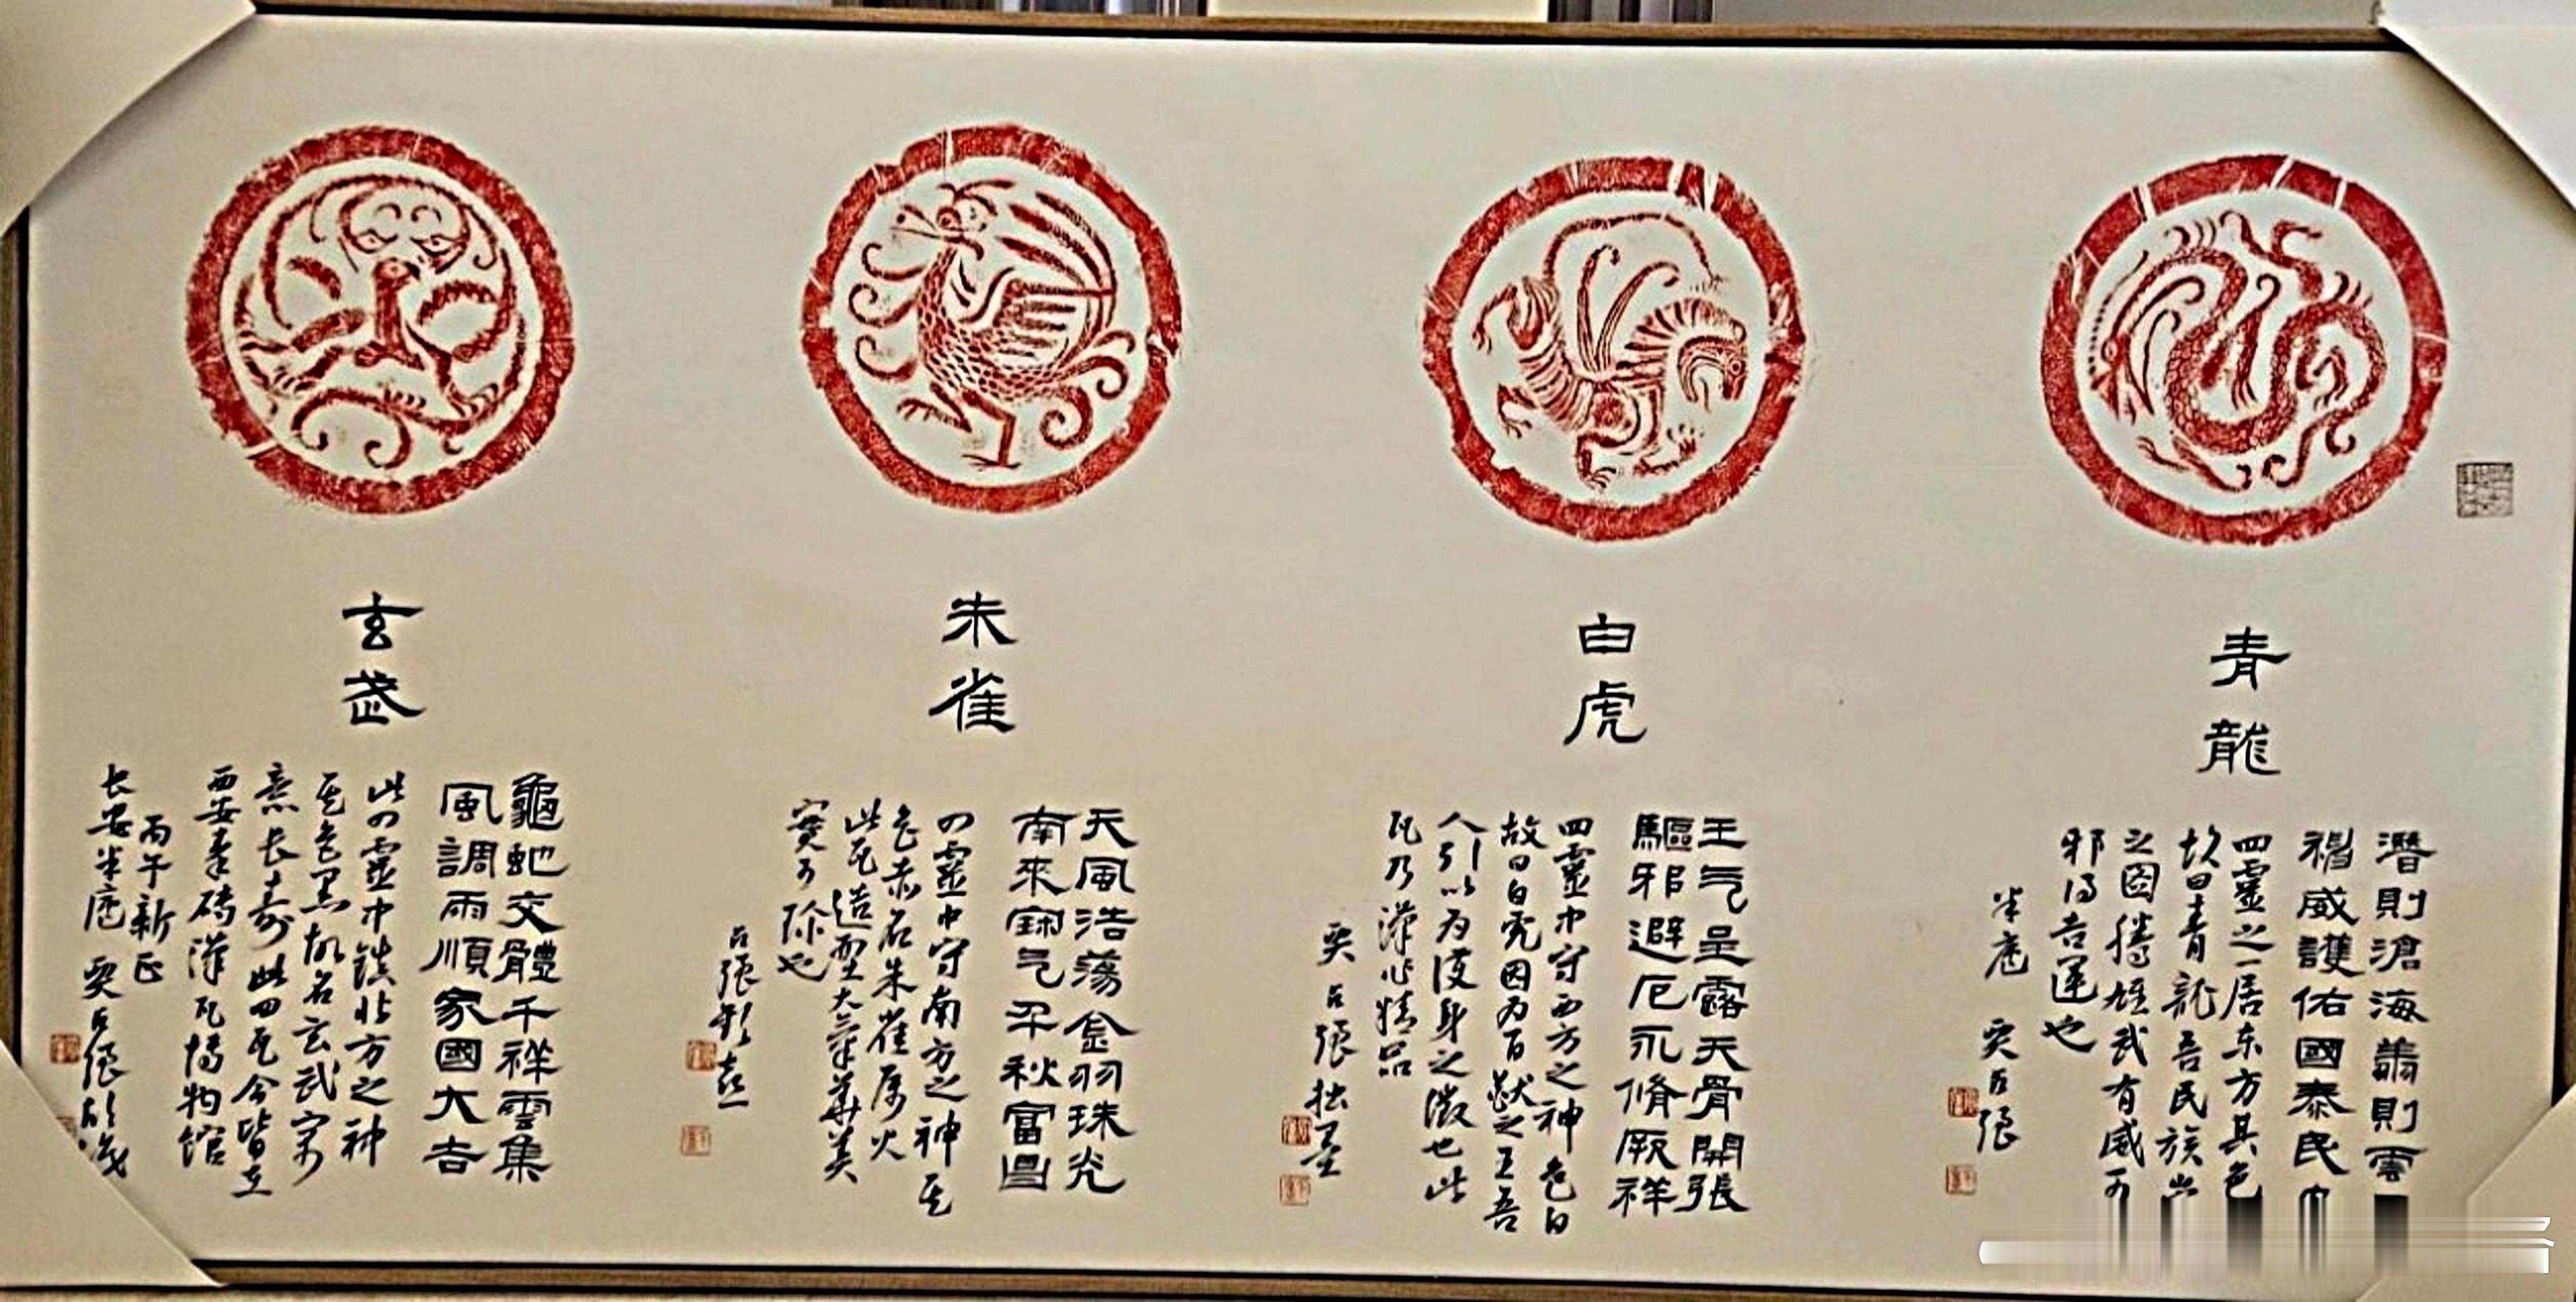 青龍
潛則滄海翥則雲
禓威護佑國泰民
四靈之一居东方其色
故曰青龍吾民族出
之图腾雄武有威可
邪得吉運也
半庵 奭占張
白虎
王气呈露天骨開張
驅邪避厄永脩厥祥
四靈中守西方之神色白
故曰白虎因为百獸之王吾
人引以为護身之徵也此
瓦乃漢代精品
奭占張拙墨
朱雀
天風浩蕩金羽珠光
南來寶气千秋富昌
四靈中守南方之神其
色赤名朱雀属火
此瓦造型大气華美
實可珍也
占張
玄武
龜虵交體千祥雲集
風調雨順家國大吉
此四靈中鎮北方之神
其色黑故名玄武寓
意长壽此四瓦今皆在
西安秦磚漢瓦博物馆
丙午新正
长安半庵 奭占張